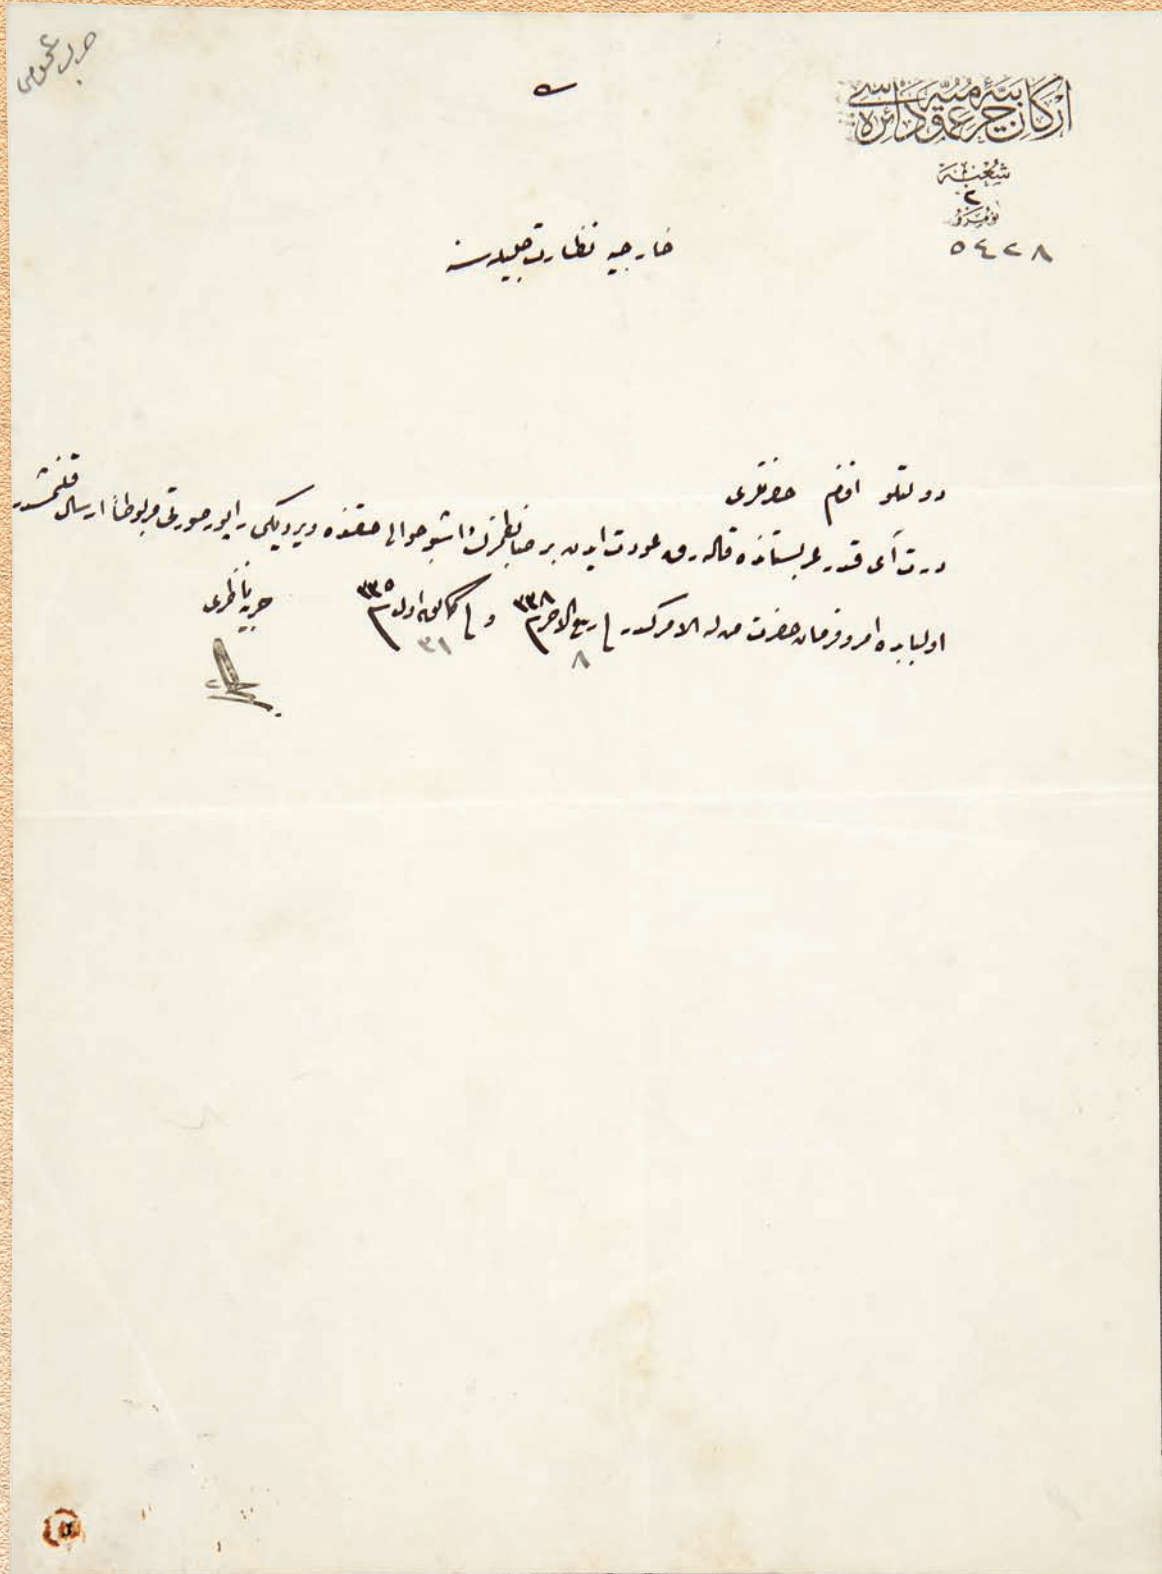 حرب عمومى
اركان حربيۀ عموميه دائره سى
شعبه
٢
نومرو
٥٤٢٨
خارجيه نظارت جليله سنه
دولتلو افندم حضرتلرى
درت آى قدر عربستانده قاله رق عودت ايدن بر ضابطمزك اشبو حوالى حقنده ويرديكى راپور صورتى مربوطاً ارسال قلنمشدر
اولبابده امر و فرمان حضرت من له الامركدر فى ٨ ربيع الآخر ٣٣٨ و فى ٣١ كانون اول ٣٣٥
حربيه ناظرى